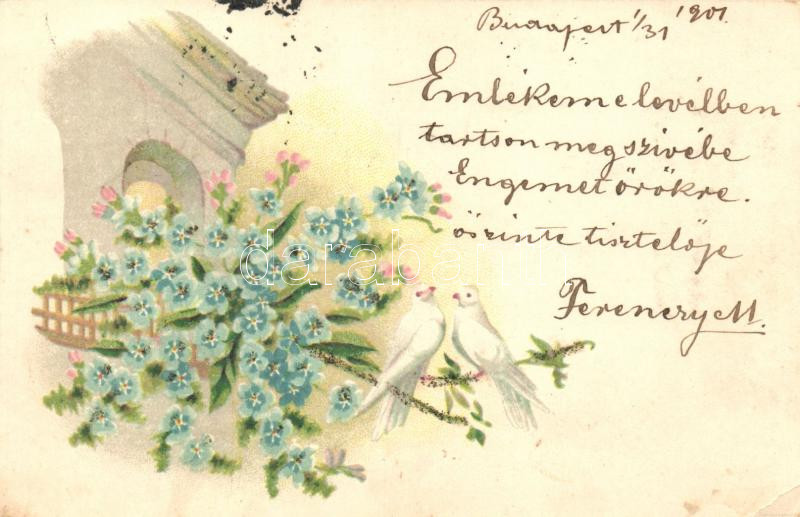 Budapest 1/31 1901
Emlékem e levélben
tartson meg szivébe
Engemet örökre.
őszinte tisztelője
Ferenczy M.
darabanth